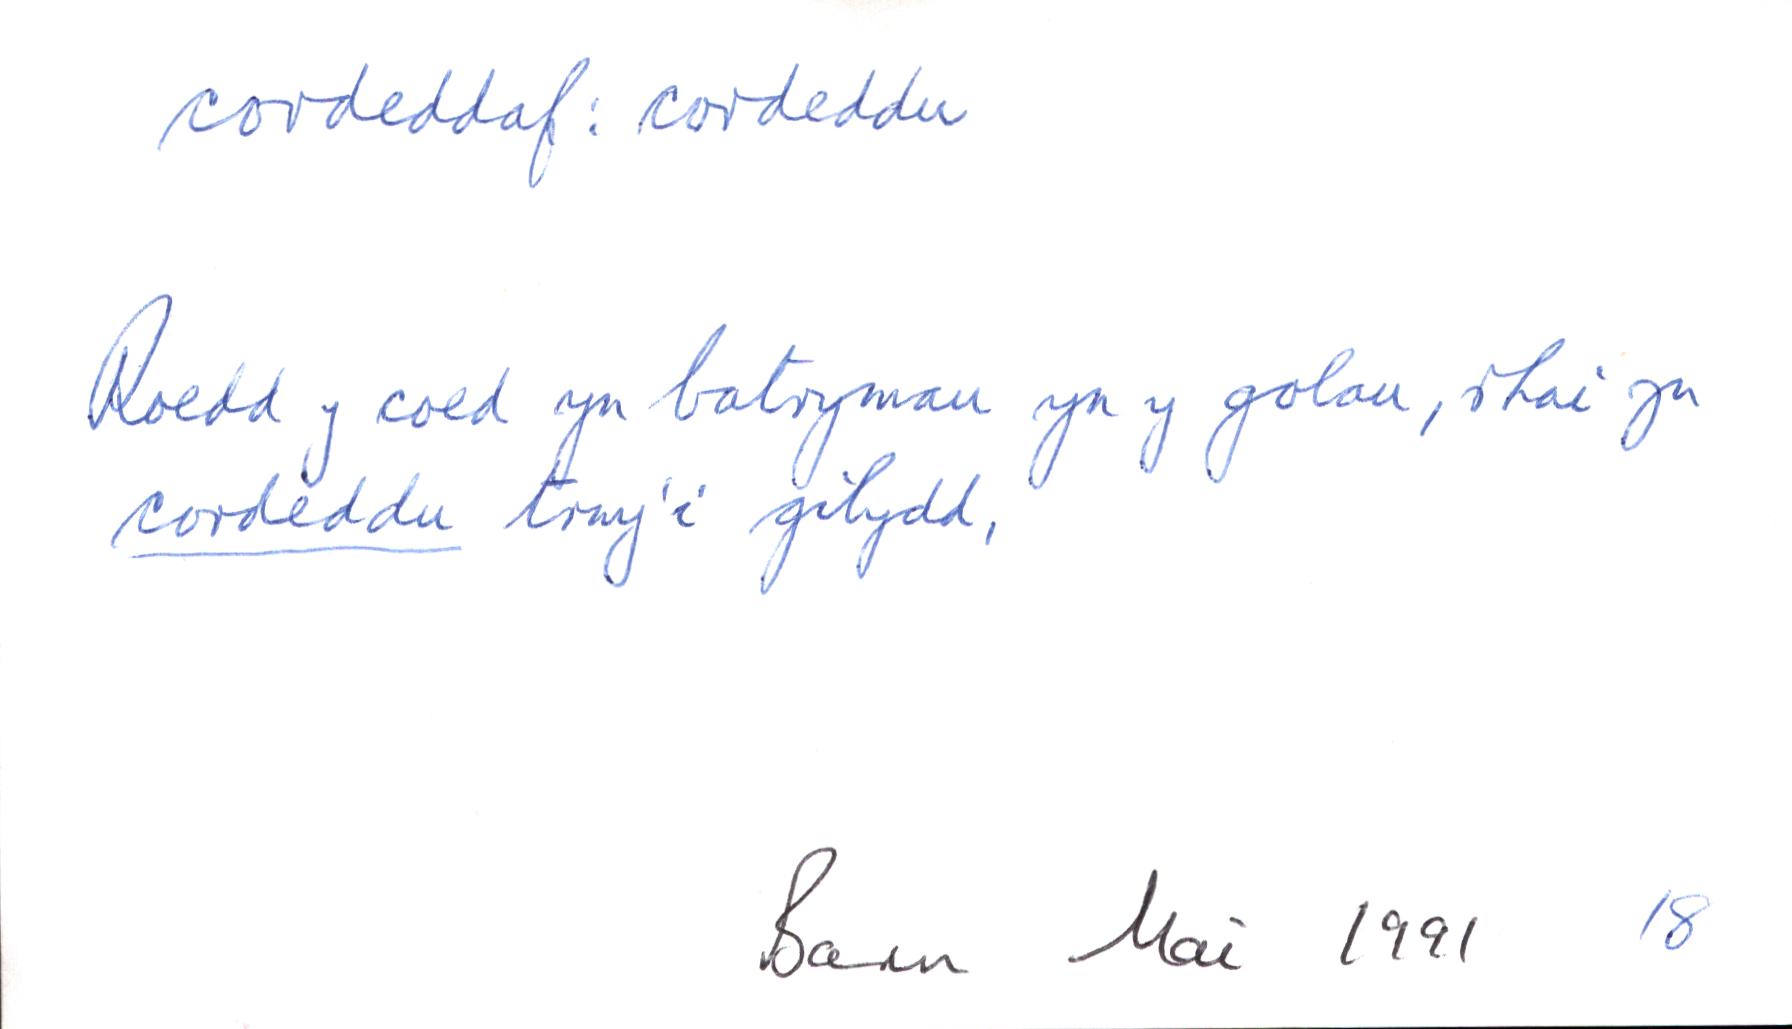 cordeddaf: cordeddu
Roedd y coed yn batrymau yn y golau, rhai yn
cordeddu trwy'i gilydd,
Barn Mai 1991 18